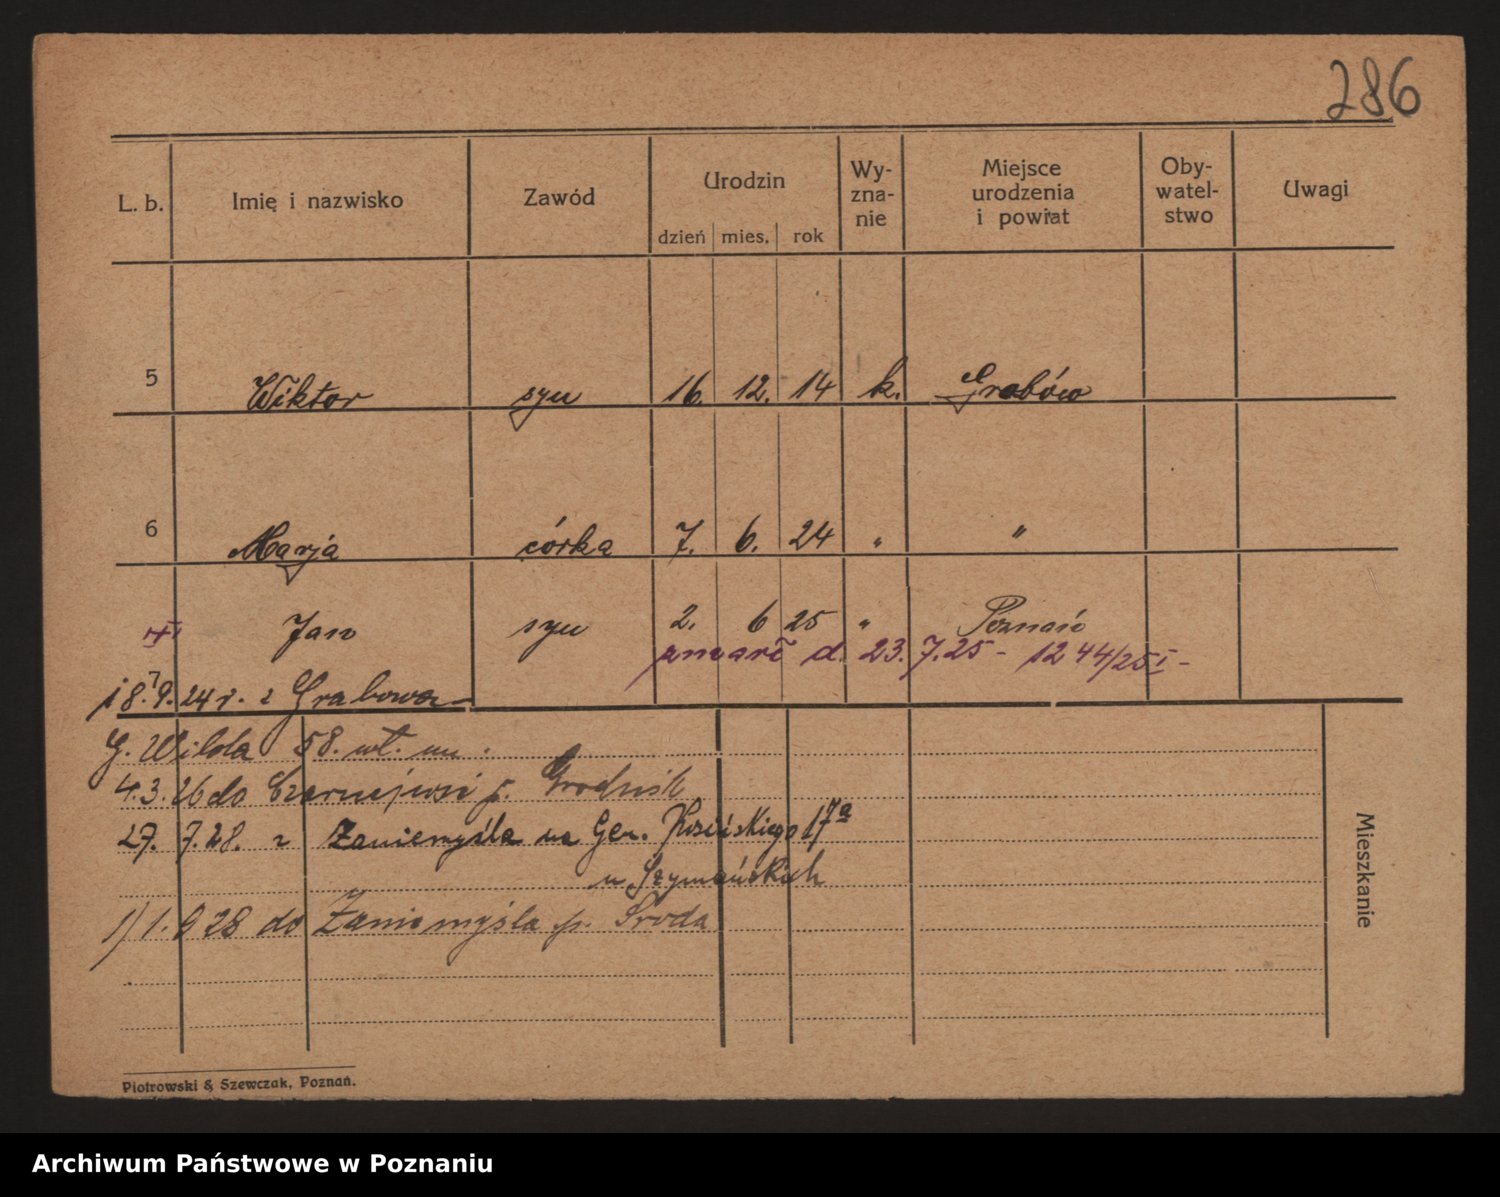 286
L. b. Imię i nazwisko Zawód Urodzin Wy-zna-nie Miejsce urodzenia i powiat Oby-watel-stwo Uwagi
dzień mies. rok
5 Wiktor syn 16. 12. 14 k. Grabów
6 Marja córka 7. 6. 24 " "
Jan syn 2. 6 25 " Poznań
zmarł d. 23.7.25 - 1244/25 I -
7
18.9.24 r. z Grabowa
G. Wilda 58.
4.3.26 do p. Grodzisk
27. 7.28. z Zaniemyśla na Gen. Kosińskiego 17a
u Szymańskich
1) 1. 9 28 do Zaniemyśla p. Środa
Mieszkanie
Piotrowski & Szewczak, Poznań.
Archiwum Państwowe w Poznaniu